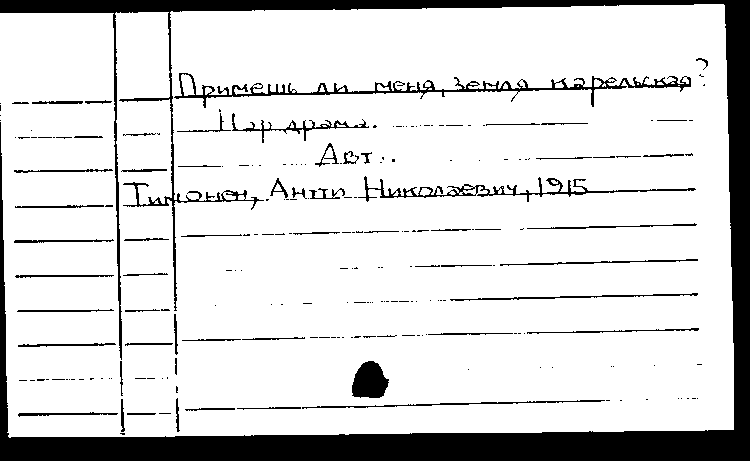 Примешь ли меня, земля карельская?
Нар. драма.
Авт.:
Тимонен, Антти Николаевич, 1915